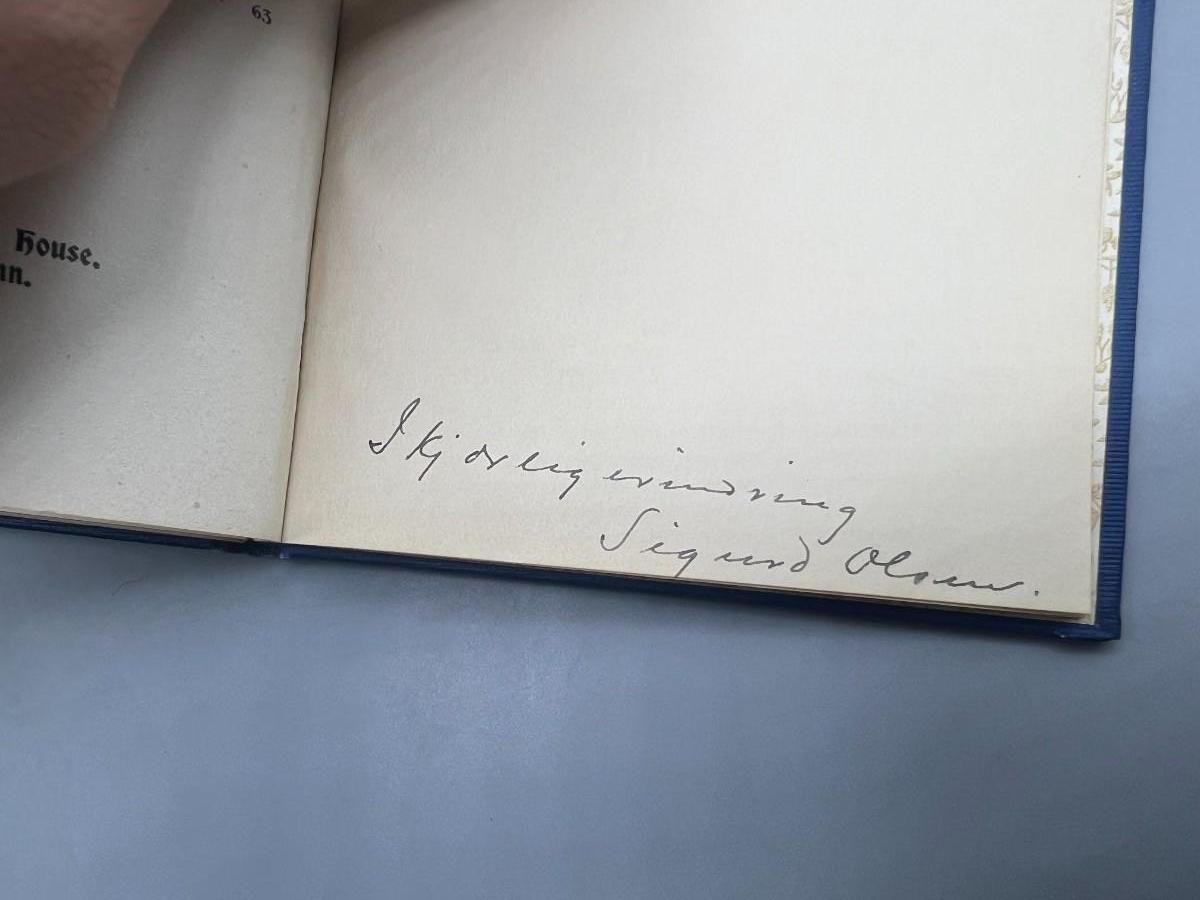 63
House.
nn.
I kjærlig erindring
Sigurd Olsen.